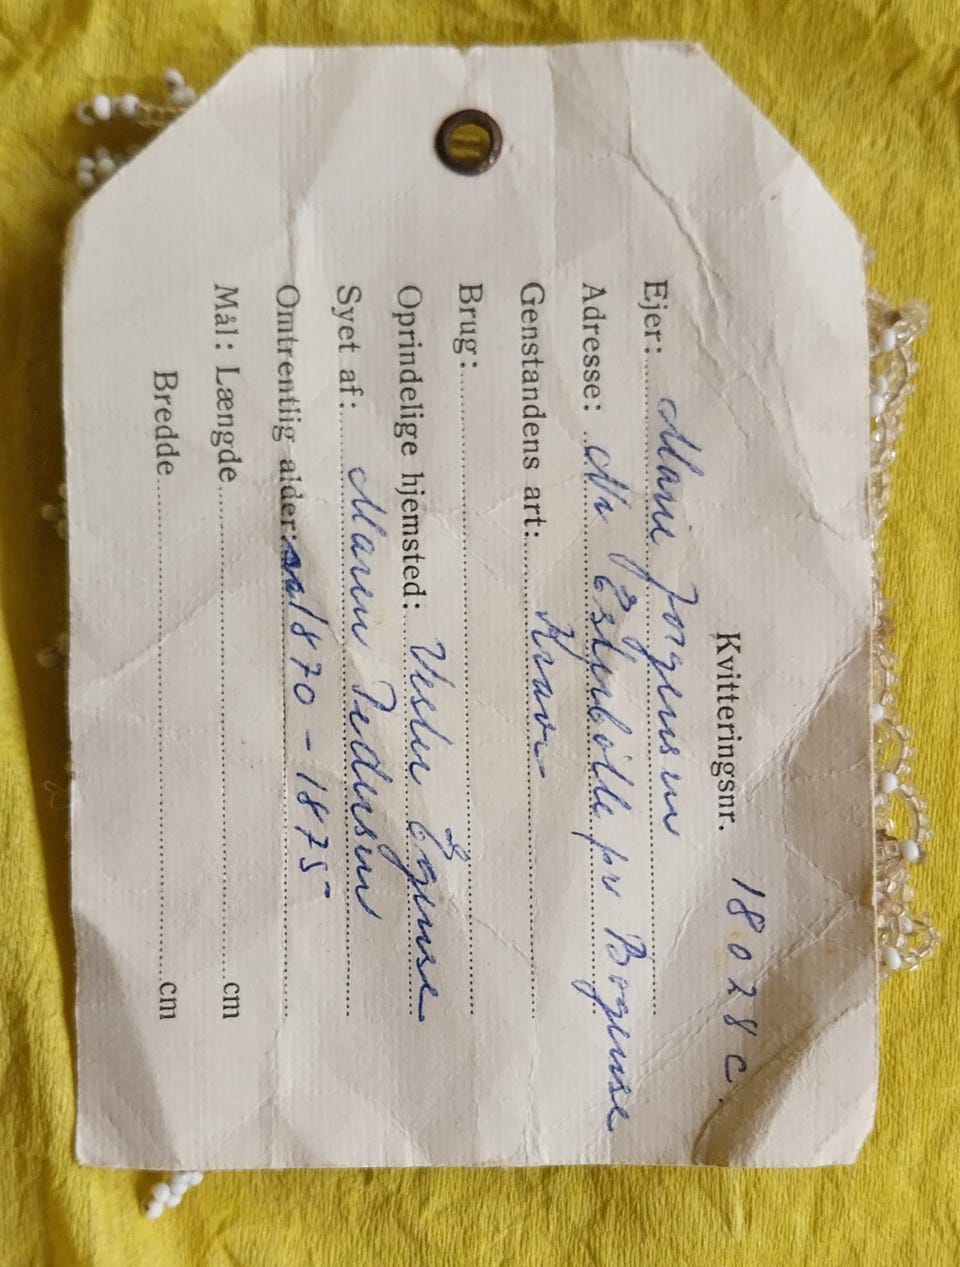 Kvitteringsnr. 18028 C
Ejer: Marie Jørgensen
Adresse: Nr Esterbölle pr Bogense
Genstandens art: Krave
Brug:
Oprindelige hjemsted: Vester Egense
Syet af: Maren Pedersen
Omtrentlig alder: 1870 - 1875
Mål: Længde cm
Bredde cm